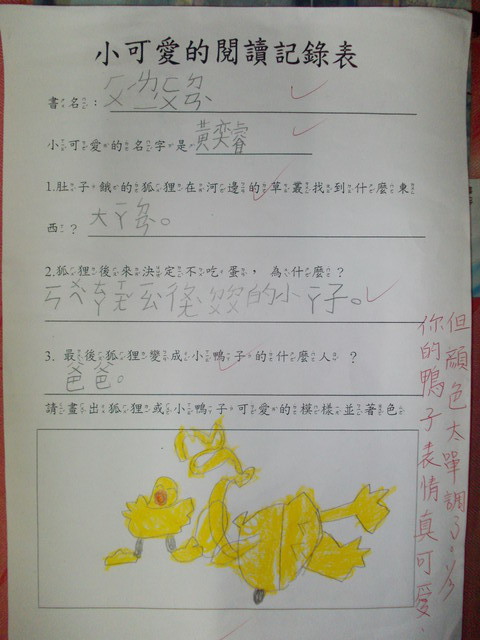 小可愛的閱讀記錄表
書名：ㄏㄨㄌㄧㄈㄨㄉㄢ
小可愛的名字是黃奕睿
1.肚子餓的狐狸在河邊的草叢找到什麼東
西？大ㄧㄚㄉㄢ。
2.狐狸後來決定不吃蛋，為什麼？
的小ㄧㄚ子。
3. 最後狐狸變成小鴨子的什麼人？
爸爸。
請畫出狐狸或小鴨子可愛的模樣並著色
你的鴨子表情真可愛
但顏色太單調了